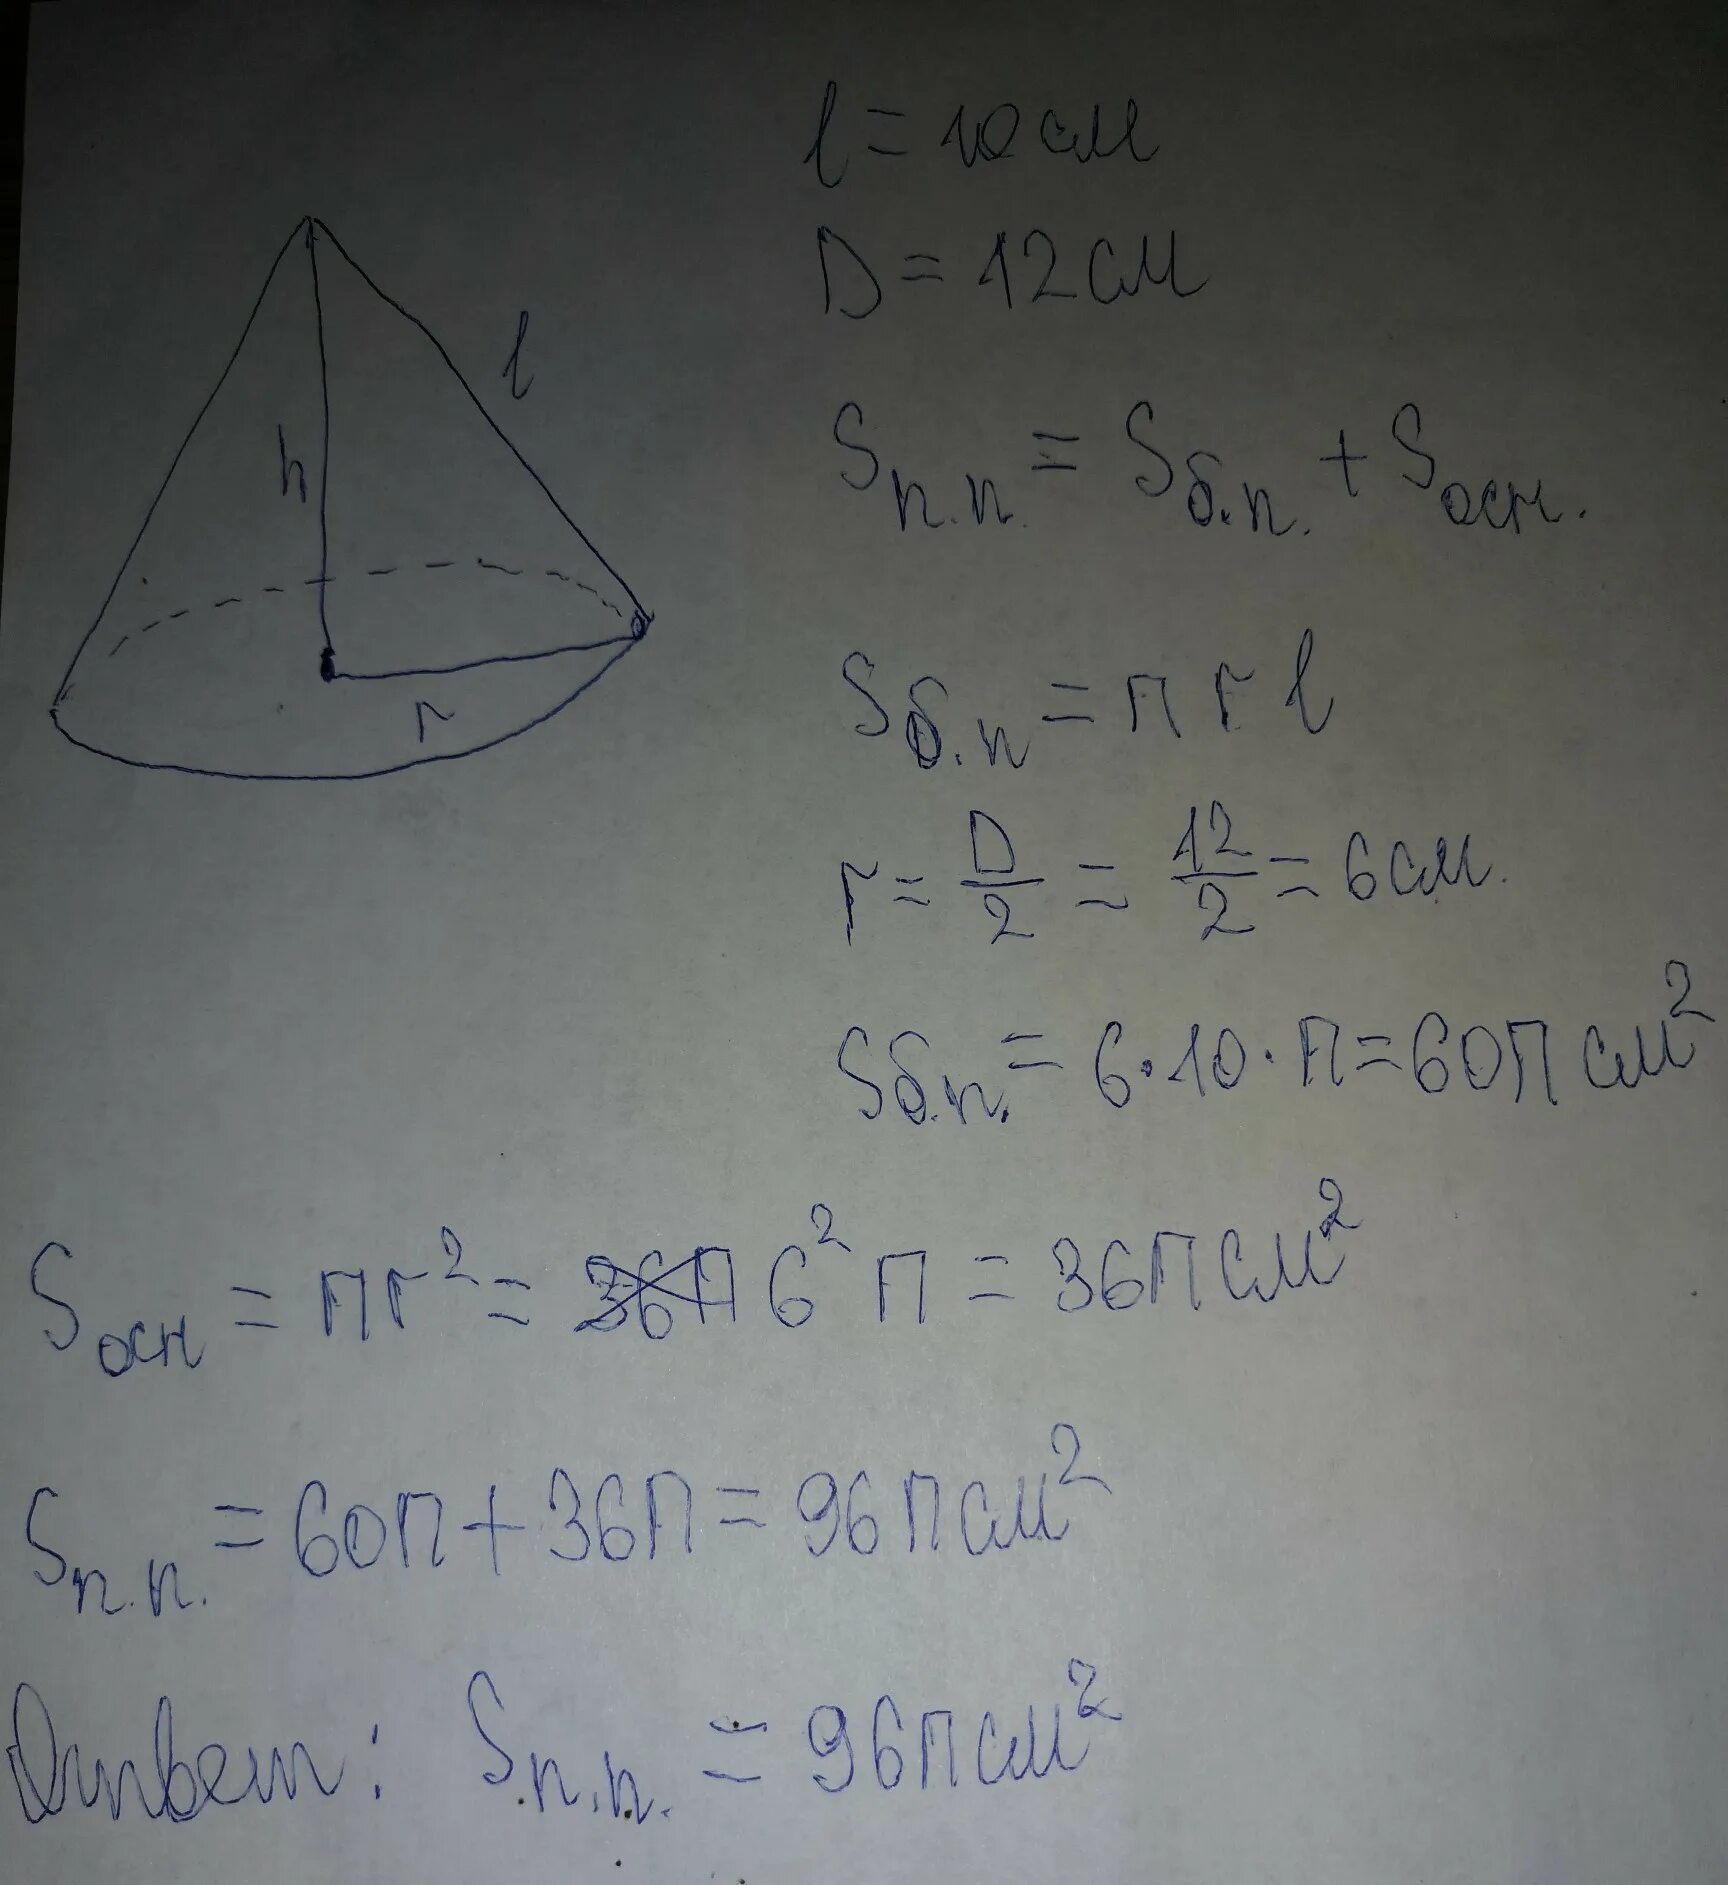 l = 10 см
D = 12 см
l
h
r
Sп.п. = Sб.п. + Sосн.
Sб.п = π r l
r = D/2 = 12/2 = 6 см.
Sб.п. = 6 · 10 · π = 60π см²
Sосн = πr² = 36π 6² π = 36π см²
Sп.п. = 60π + 36π = 96π см²
Ответ: Sп.п. = 96π см²